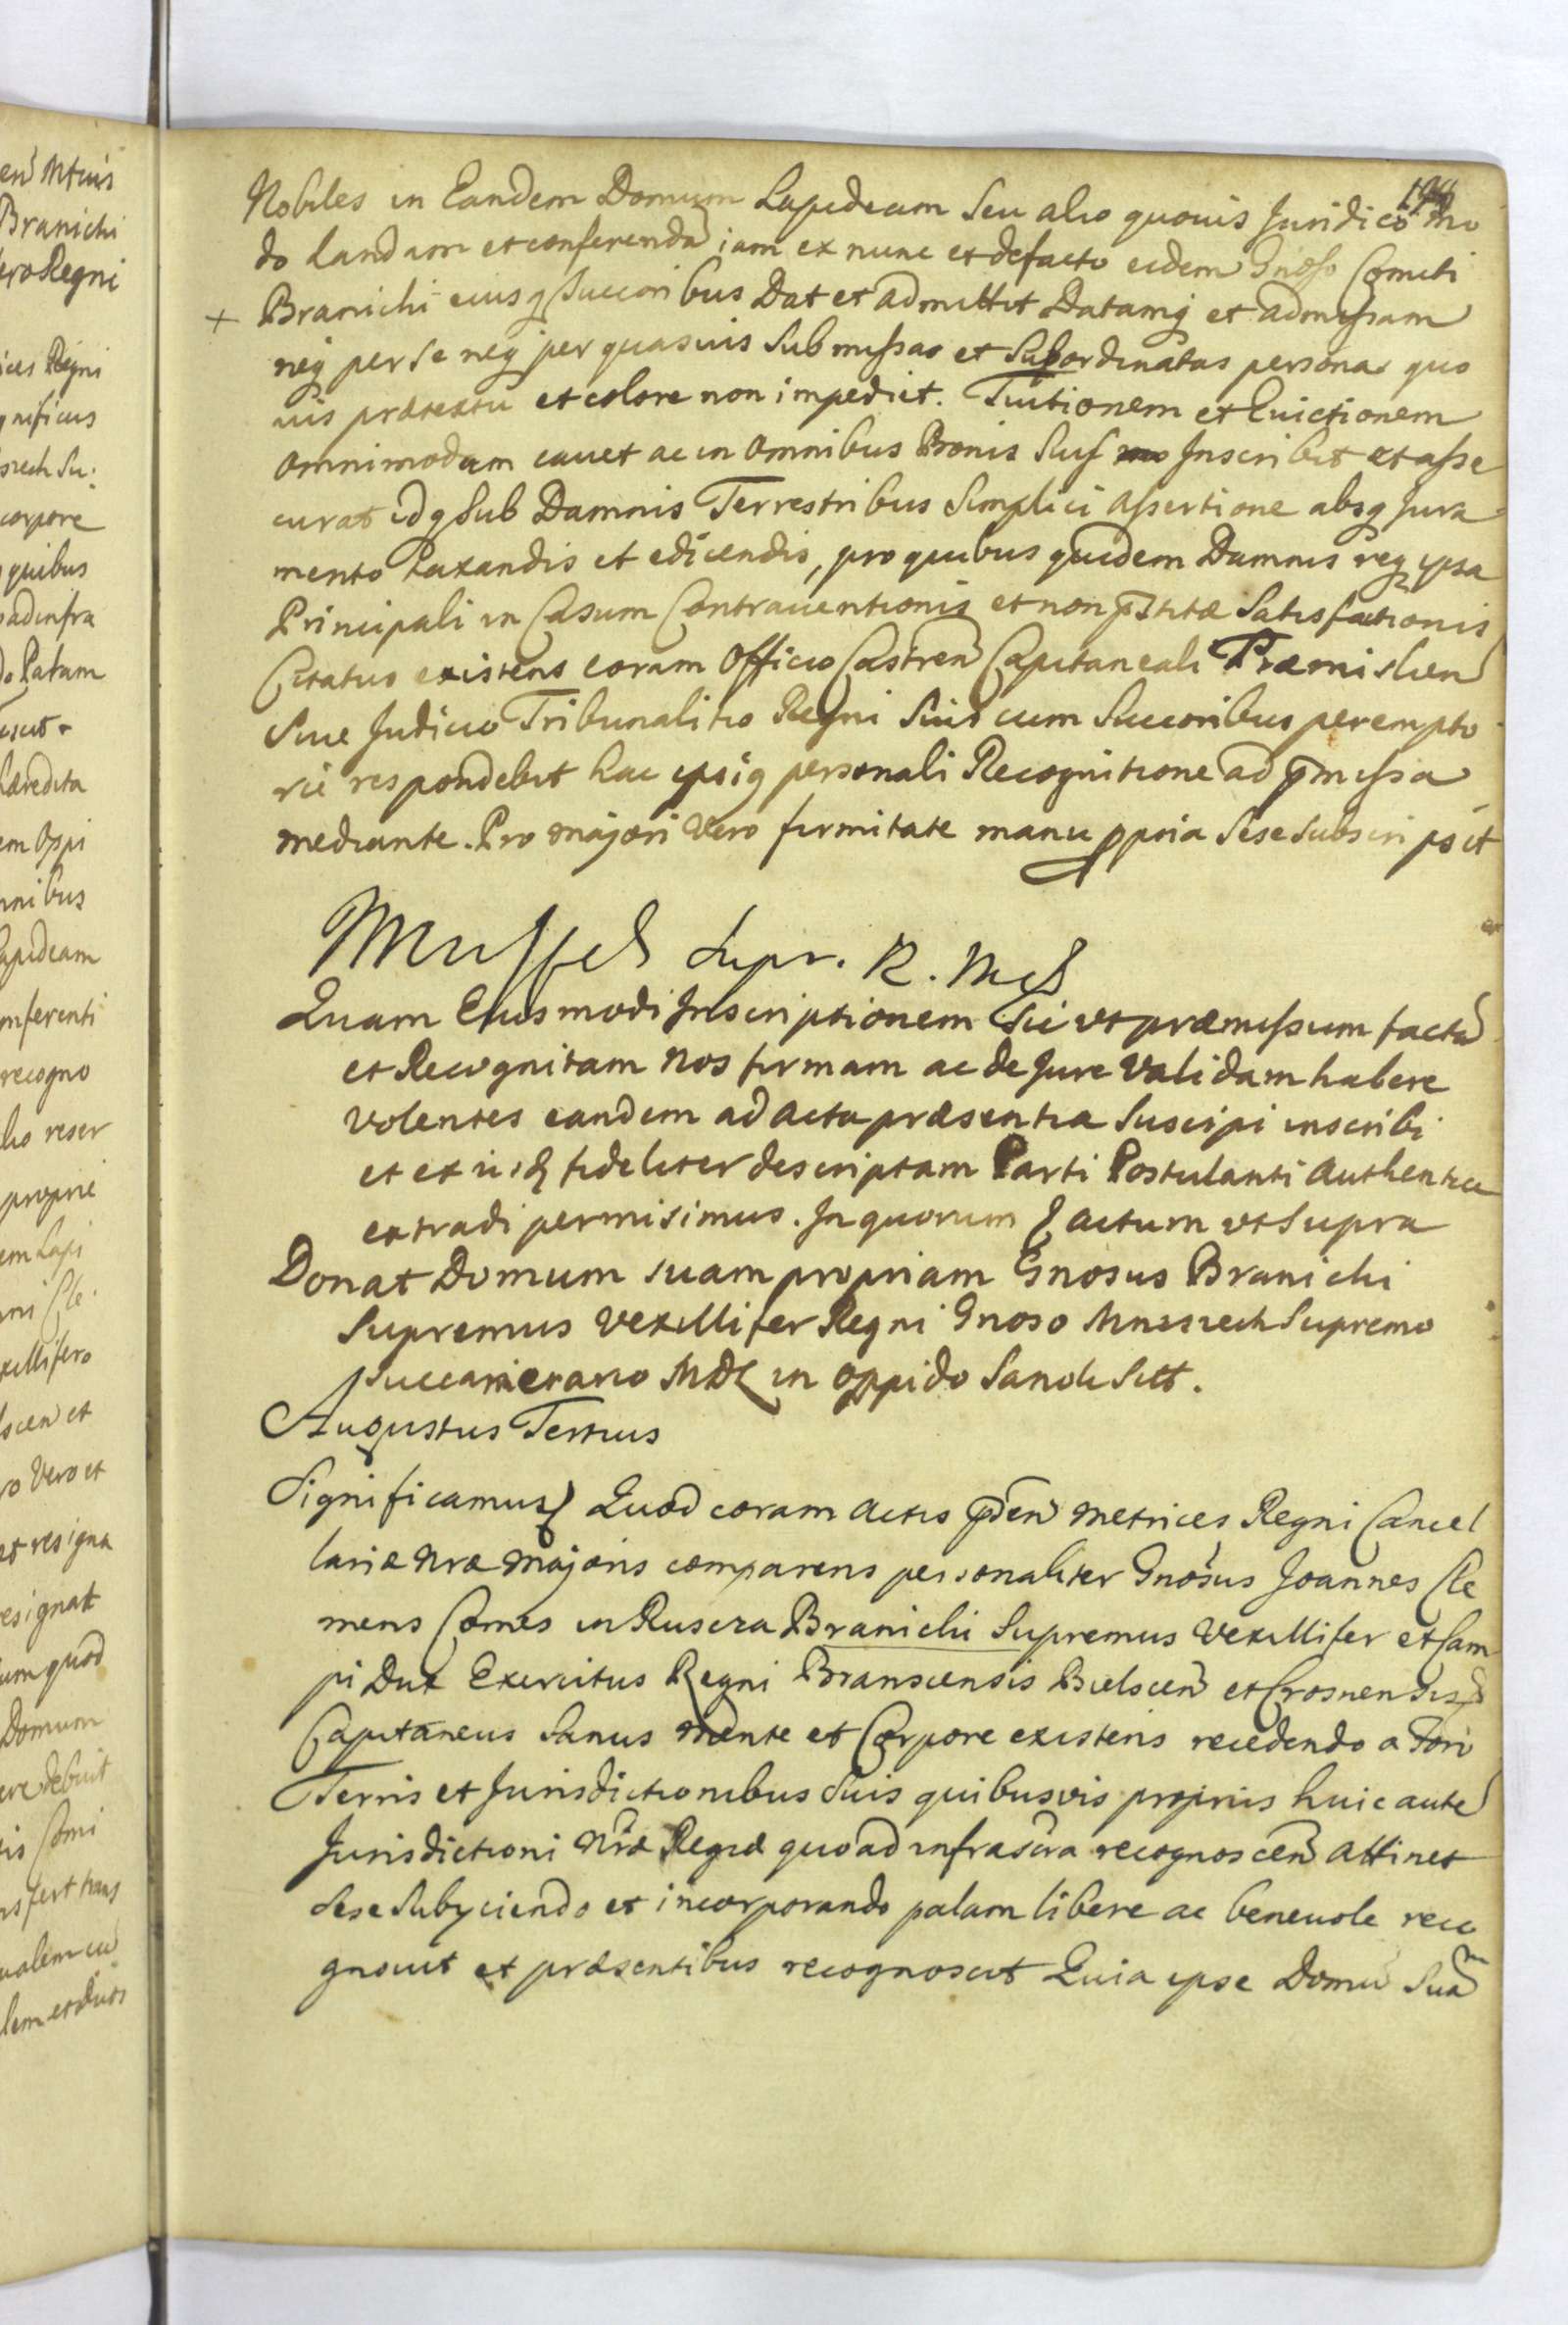 Nobiles in Eandem Domum Lapideam Seu alio quovis Juridico mo
do landam et conferendā iam ex nunc et defacto eidem Gnoso Comiti
+ Branicki eiusq Succoribus Dat et admittit Datamq et admissam
neq per se neq per quasvis Submissas et Subordinatas personas quo
vis prætextu et colore non impediet. Tuitionem et Evictionem
omnimodam cavet ac in omnibus Bonis Suis Inscribit et asse
curat idq Sub Damnis Terrestribus Simplici assertione absq Jura
mento taxandis et edicendis, pro quibus quidem Damnis req ipsa
Principali in Casum Contraventionis et non pstitæ Satisfactionis
Citatus existens coram Officio Castren Capitaneali Præmislien
Sive Judicio Tribunalitio Regni Suis cum Succoribus perempto
rie respondebit hac ipsiq personali Recognitione ad pmissa
mediante. Pro majori Vero firmitate manu ppria Sese Subscripsit
Supr. R.
Quam Eiusmodi Inscriptionem Sic ut præmissum factā
et Recognitam Nos firmam ac de Jure Validam habere
Volentes eandem ad acta præsentia Suscipi inscribi
et ex iisd fideliter descriptam Parti Postulanti Authentice
extradi permisimus. In quorum actum ut Supra
Donat Domum suam propriam Gnosus Branicki
Supremus Vexillifer Regni Gnoso Mniszech Supremo
Succamerario MDL in oppido Sandi Sitt.
Augustus Tertius
Significamus Quod coram actis pden Metrices Regni Cancel
lariæ Nræ Majoris comparens personaliter Gnosus Joannes Cle
mens Comes in Ruscza Branicki Supremus Vexillifer et Cam
pi Dux Exercitus Regni Branscensis Bielscen et Crosnensis
Capitaneus Sanus mente et Corpore existens recedendo a Fori
Terris et Jurisdictionibus Suis quibusvis propriis huic autē
Jurisdictioni Nræ Regiæ quoad infrascra recognoscen attinet
Sese Subyciendo et incorporando palam libere ac benevole reco
gnovit et præsentibus recognoscit Quia ipse Domū Suā